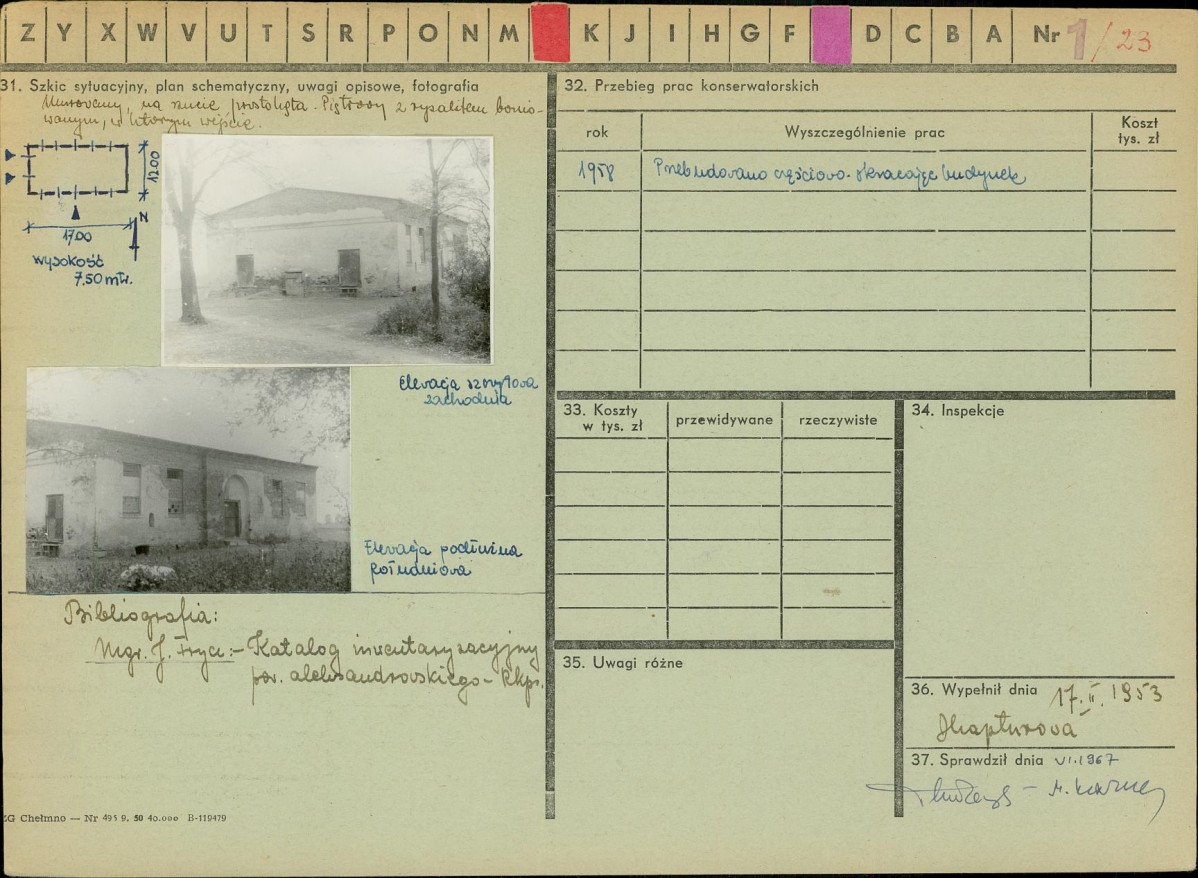 Z Y X W V U T S R P O N M K J I H G F D C B A Nr 1/23
31. Szkic sytuacyjny, plan schematyczny, uwagi opisowe, fotografia
Murowany, na rzucie prostokąta. Piętrowy z ryzalitem bonio-
wanym, w którym wejście.
1200
N
1700
wysokość
7.50 mtr.
Elewacja szczytowa
zachodnia
Elewacja podłużna
południowa
Bibliografia:
Mgr. J. Fryc:- Katalog inwentaryzacyjny
pow. aleksandrowskiego - Rkps.
ZG Chełmno — Nr 495 9. 50 40.000 B-119479
32. Przebieg prac konserwatorskich
rok
Wyszczególnienie prac
Koszt
tys. zł
1958
Przebudowano częściowo - skracając budynek
33. Koszty
w tys. zł
przewidywane
rzeczywiste
34. Inspekcje
35. Uwagi różne
36. Wypełnił dnia 17.II.1953
37. Sprawdził dnia VI.1967